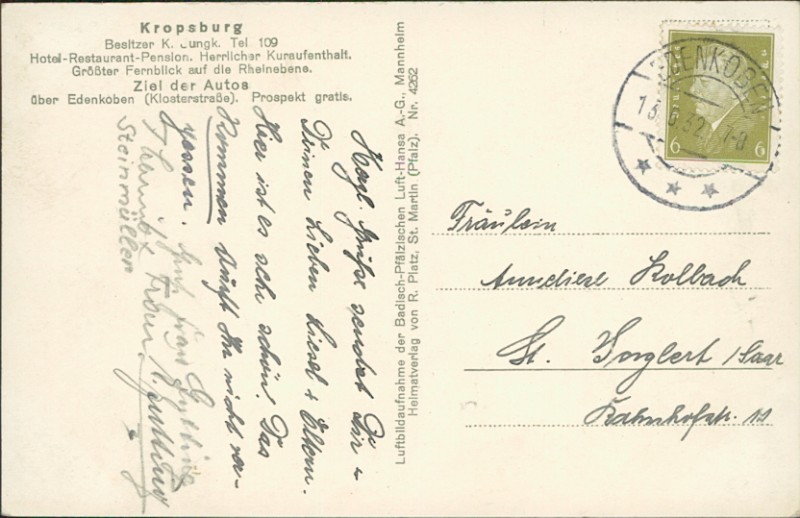 Kropsburg
Besitzer K. Jungk. Tel 109
Hotel-Restaurant-Pension. Herrlicher Kuraufenthalt.
Größter Fernblick auf die Rheinebene.
Ziel der Autos
über Edenkoben (Klosterstraße). Prospekt gratis.
Herzl. Grüße sendet Dir u.
Deinen lieben Liesel + Eltern.
Hier ist es sehr schön. Das
Kommen dürft Ihr nicht ver-
gessen.
Frau
Steinmüller
Luftbildaufnahme der Badisch-Pfälzischen Luft-Hansa A.-G., Mannheim
Heimatverlag von R. Platz, St. Martin (Pfalz). Nr. 4262
EDENKOBEN
6 6
Fräulein
Anneliese Kolbach
St. Ingbert / Saar
Bahnhofstr.